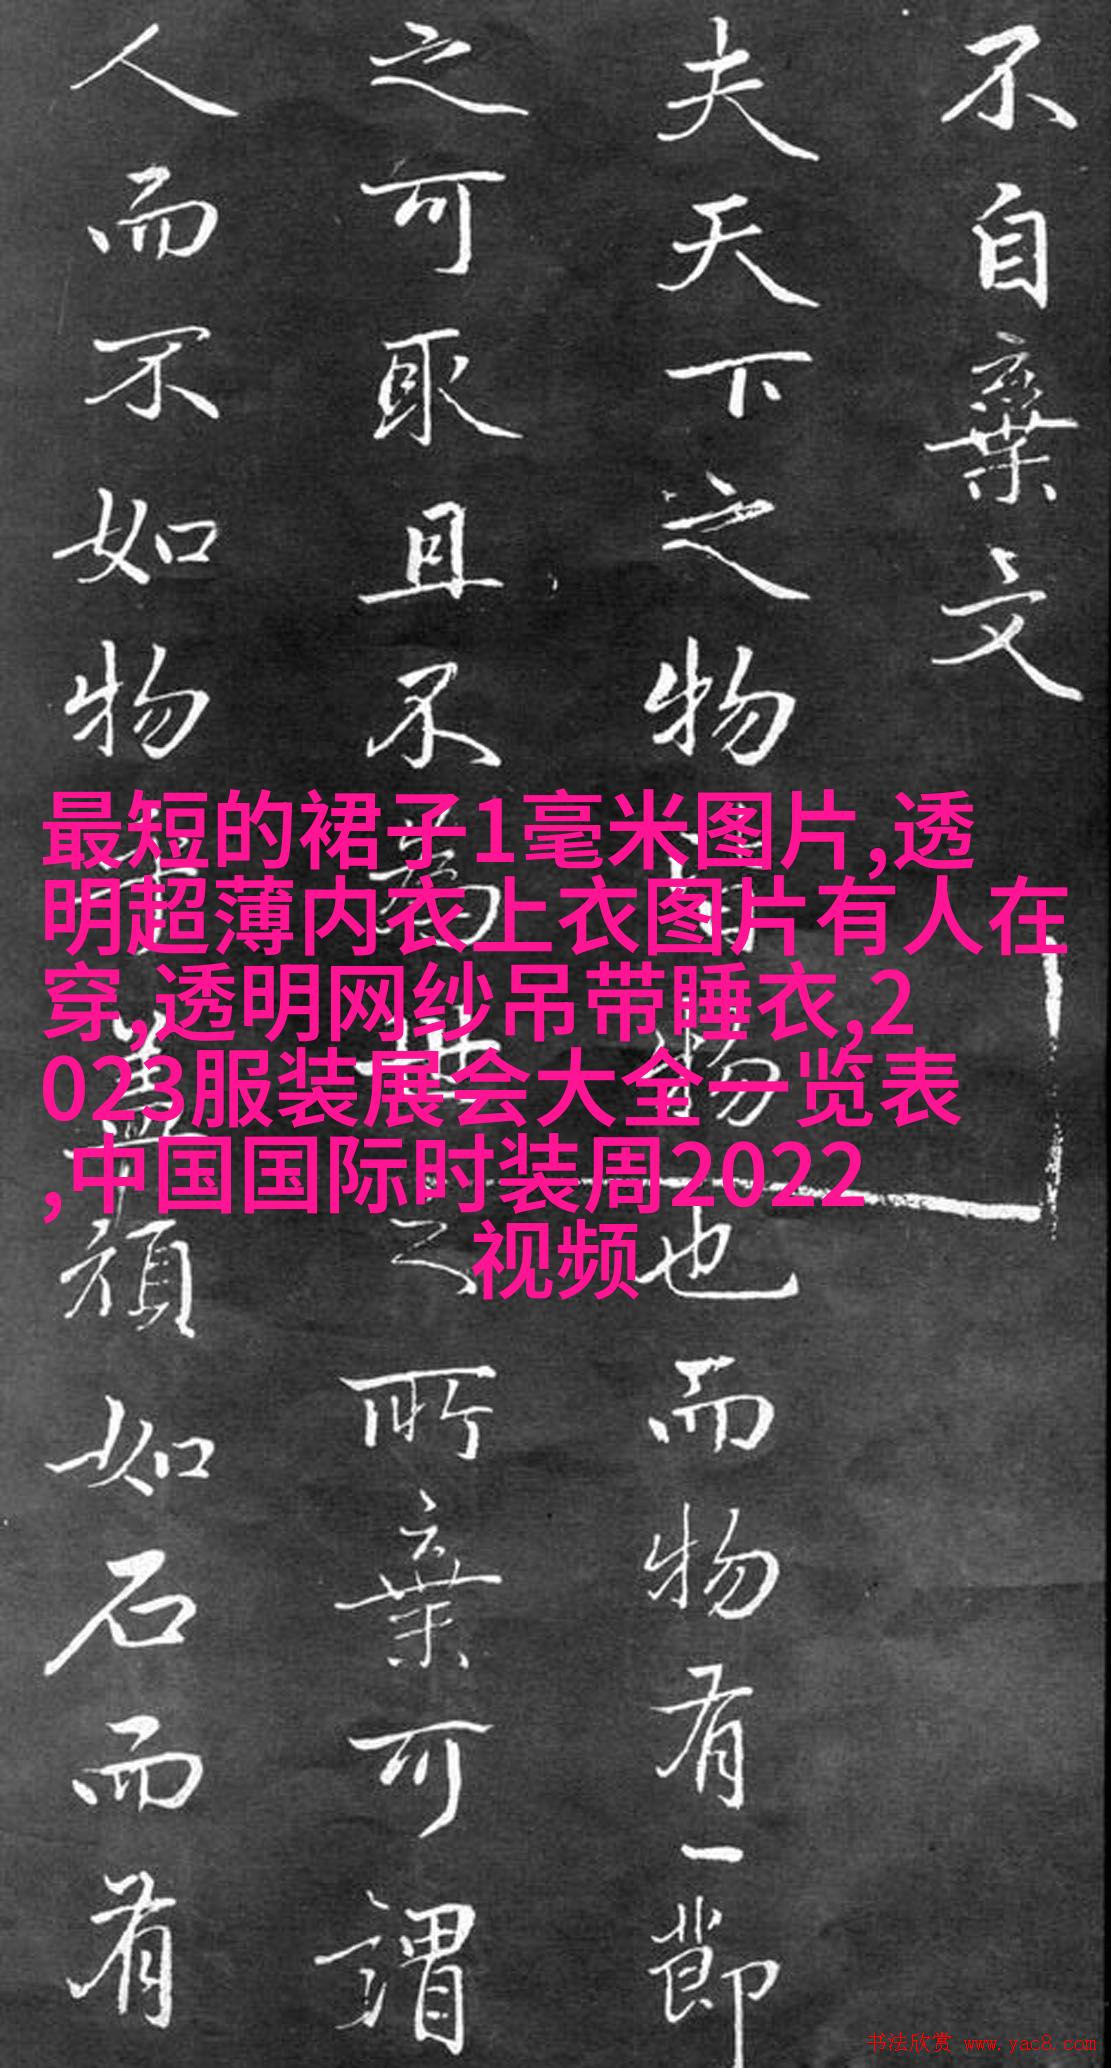 不自棄文
夫天下之物皆物也而物有一節
之可取且不爲世之所棄可謂
人而不如物乎蓋頑如石而有
最短的裙子1毫米图片,透
明超薄内衣上衣图片有人在
穿,透明网纱吊带睡衣,2
023服装展会大全一览表
,中国国际时装周2022
视频
书法欣赏 www.yac8.com